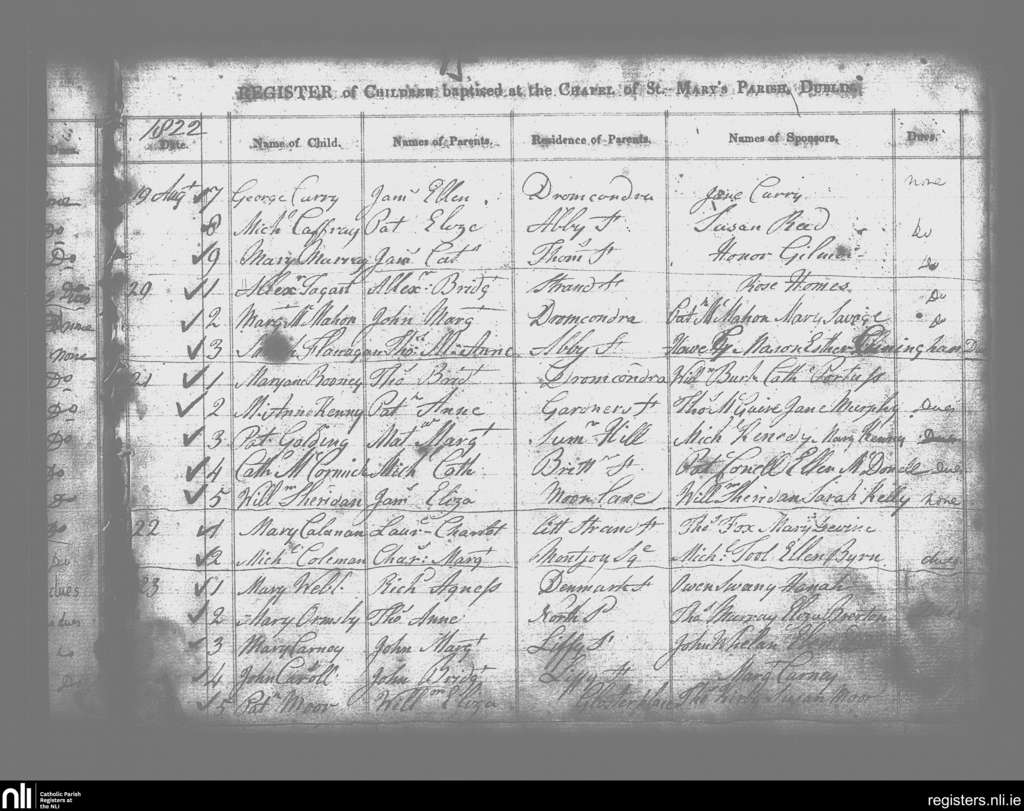 REGISTER of CHILDREN baptised at the CHAPEL of St. MARY'S PARISH, DUBLIN.
1822
Date. Name of Child. Names of Parents. Residence of Parents. Names of Sponsors. Dues.
19 Augt 7 George Curry Jams Ellen Dromcondra Jane Curry none
8 Michl Caffray Pat Eloze Abby St Susan Read Do
9 Mary Murray Jams Cath Thoms St Honor Do
20 1 Allexr Allexr Bridgt Strand St Rose Homes Do
2 Margt McMahon John Margt Dromcondra Patk McMahon Mary Savege Do
3 Flanagan Thos M. Anne Abby St Mason Esther
21 1 Maryann Rooney Thos Bridt Dromcondra Willm Burk Cathe
2 M. Anne Kenny Patk Anne Gardners St Thos McGuire Jane Murphy Dues
3 Pat Golding Mat Margt Sumr Hill Michl Kenedy Mary Kenny Dues
4 Cath McCormick Mich Cath Brittn St Pat Conell Ellen McDonell dues
5 Willm Sheridan Jams Eliza Moor Lane Willm Sheridan Sarah Kelly none
22 1 Mary Calanan Laurce Charott litt Strand St Thos Fox Mary Levine
2 Michl Coleman Chars Margt Montjoy Sqe Michl Tool Ellen Byrn dues
23 1 Mary Webb Richd Agness Denmark St Owen Swany Hanah
2 Mary Ormsby Thos Anne North P Thos Murray Eliza
3 Mary Carney John Margt Liffy St John Whelan
4 John Caroll John Bridgt Liffy St Margt Carney
5 Patk Moor Willm Eliza Glosterplace Thos Kirby Susan Moor
nli Catholic Parish
Registers at
the NLI
registers.nli.ie